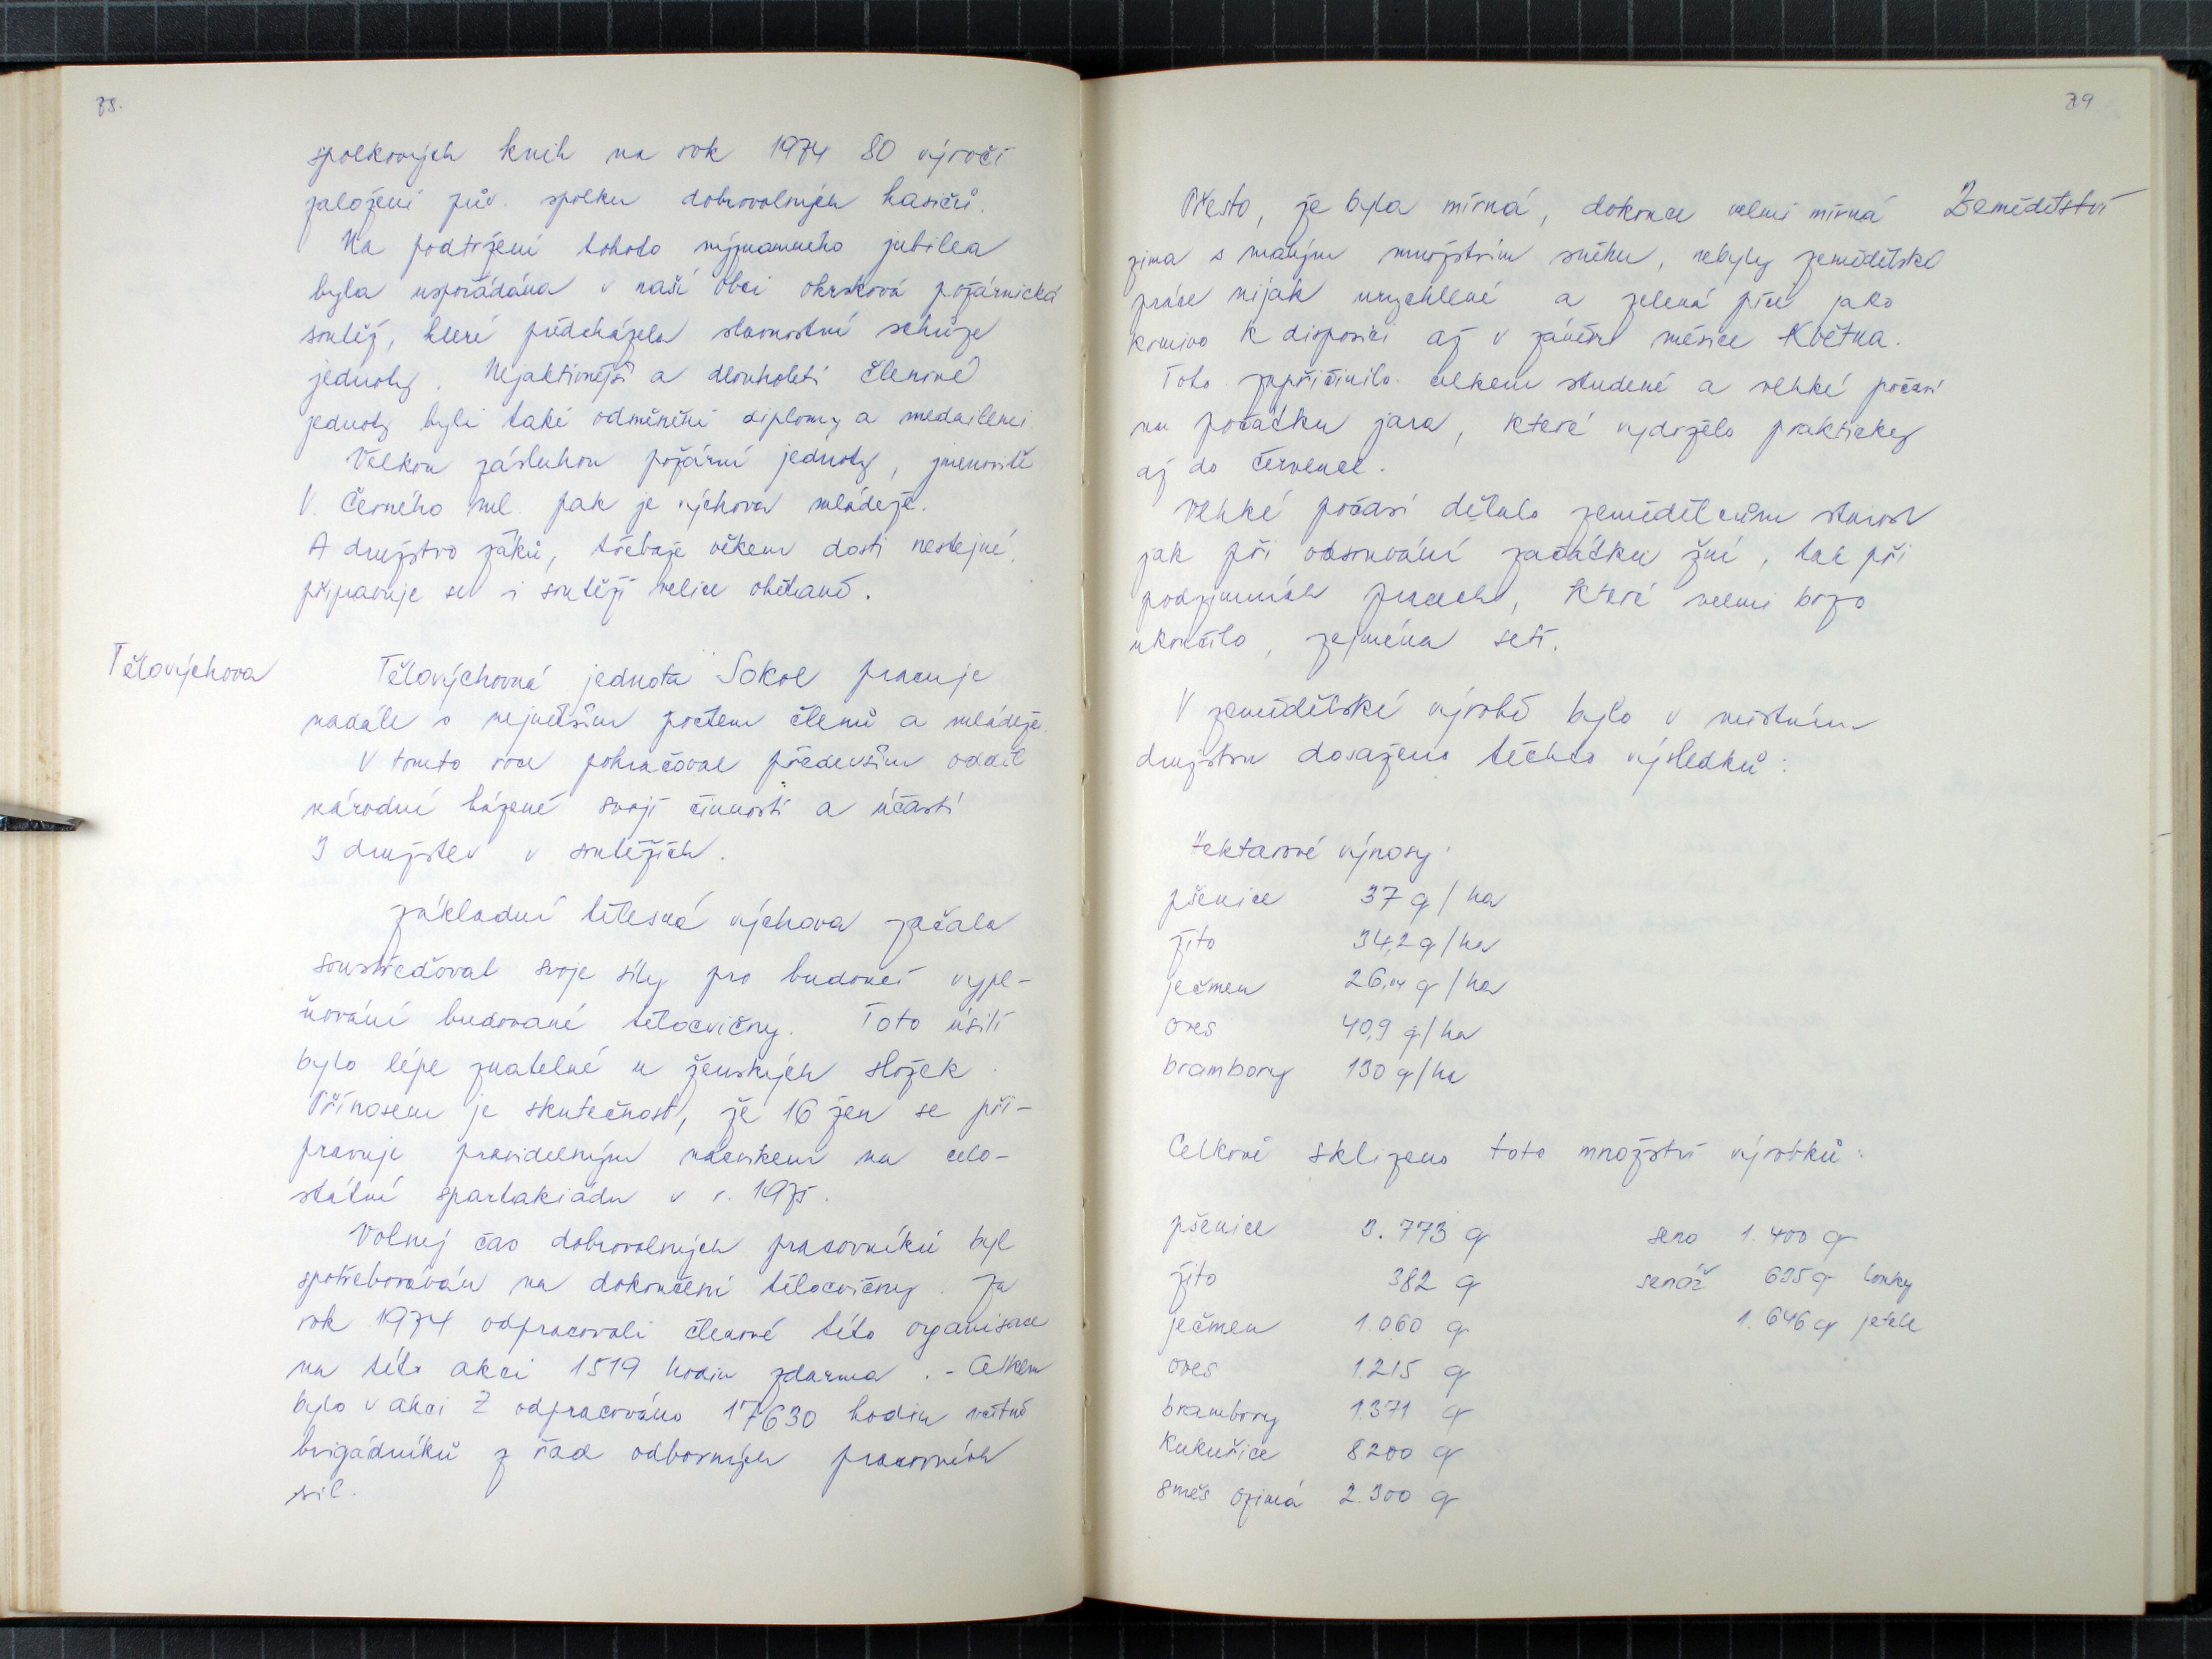 78.
spolkových knih na rok 1974 80 výročí
založení pův. spolku dobrovolných hasičů.
Na podtržení tohoto významného jubilea
byla uspořádána v naší obci okrsková požárnická
soutěž, které předcházela slavnostní schůze
jednoty. Nejaktivnější a dlouholetí členové
jednoty byli také odměněni diplomy a medailemi
Velkou zásluhou požární jednoty, jmenovitě
V. Černého ml. pak je výchova mládeže.
A družstvo žáků, třebaže věkem dosti nestejné,
připravuje se i soutěží velice obětavě.
Tělovýchova
Tělovýchovná jednota Sokol pracuje
nadále s největším počtem členů a mládeže.
V tomto roce pokračoval především oddíl
národní házené svojí činností a účastí
3 družstev v soutěžích.
základní tělesná výchova začala
soustřeďovat svoje síly pro budoucí vypl-
ňování budované tělocvičny. Toto úsilí
bylo lépe znatelné u ženských složek.
Přínosem je skutečnost, že 16 žen se při-
pravuje pravidelným nácvikem na celo-
státní spartakiádu v r. 1975.
Volný čas dobrovolných pracovníků byl
spotřebováván na dokončení tělocvičny. Za
rok 1974 odpracovali členové této organisace
na této akci 1519 hodin zdarma. - Celkem
bylo v akci Z odpracováno 17630 hodin včetně
brigádníků z řad odborných pracovních
sil.
79
Zemědělství
Přesto, že byla mírná, dokonce velmi mírná
zima s malým množstvím sněhu, nebyly zemědělské
práce nijak urychlené a zelená píce jako
krmivo k disposici až v závěru měsíce Května.
Toto zapříčinilo celkem studené a vlhké počasí
na počátku jara, které vydrželo prakticky
až do července.
Vlhké počasí dělalo zemědělcům starost
jak při odsouvání začátku žní, tak při
podzimních pracech, které velmi brzo
ukončilo, zejména setí.
V zemědělské výrobě bylo v místním
družstvu dosaženo těchto výsledků:
Hektarové výnosy:
pšenice 37 q/ha
žito 34,2 q/ha
ječmen 26,04 q/ha
oves 40,9 q/ha
brambory 130 q/ha
Celkově sklizeno toto množství výrobků:
pšenice 3.773 q seno 1.400 q
žito 382 q senáž 625 q louky
ječmen 1.060 q 1.646 q jetele
oves 1.215 q
brambory 1.371 q
kukuřice 8200 q
směs ozimá 2.300 q